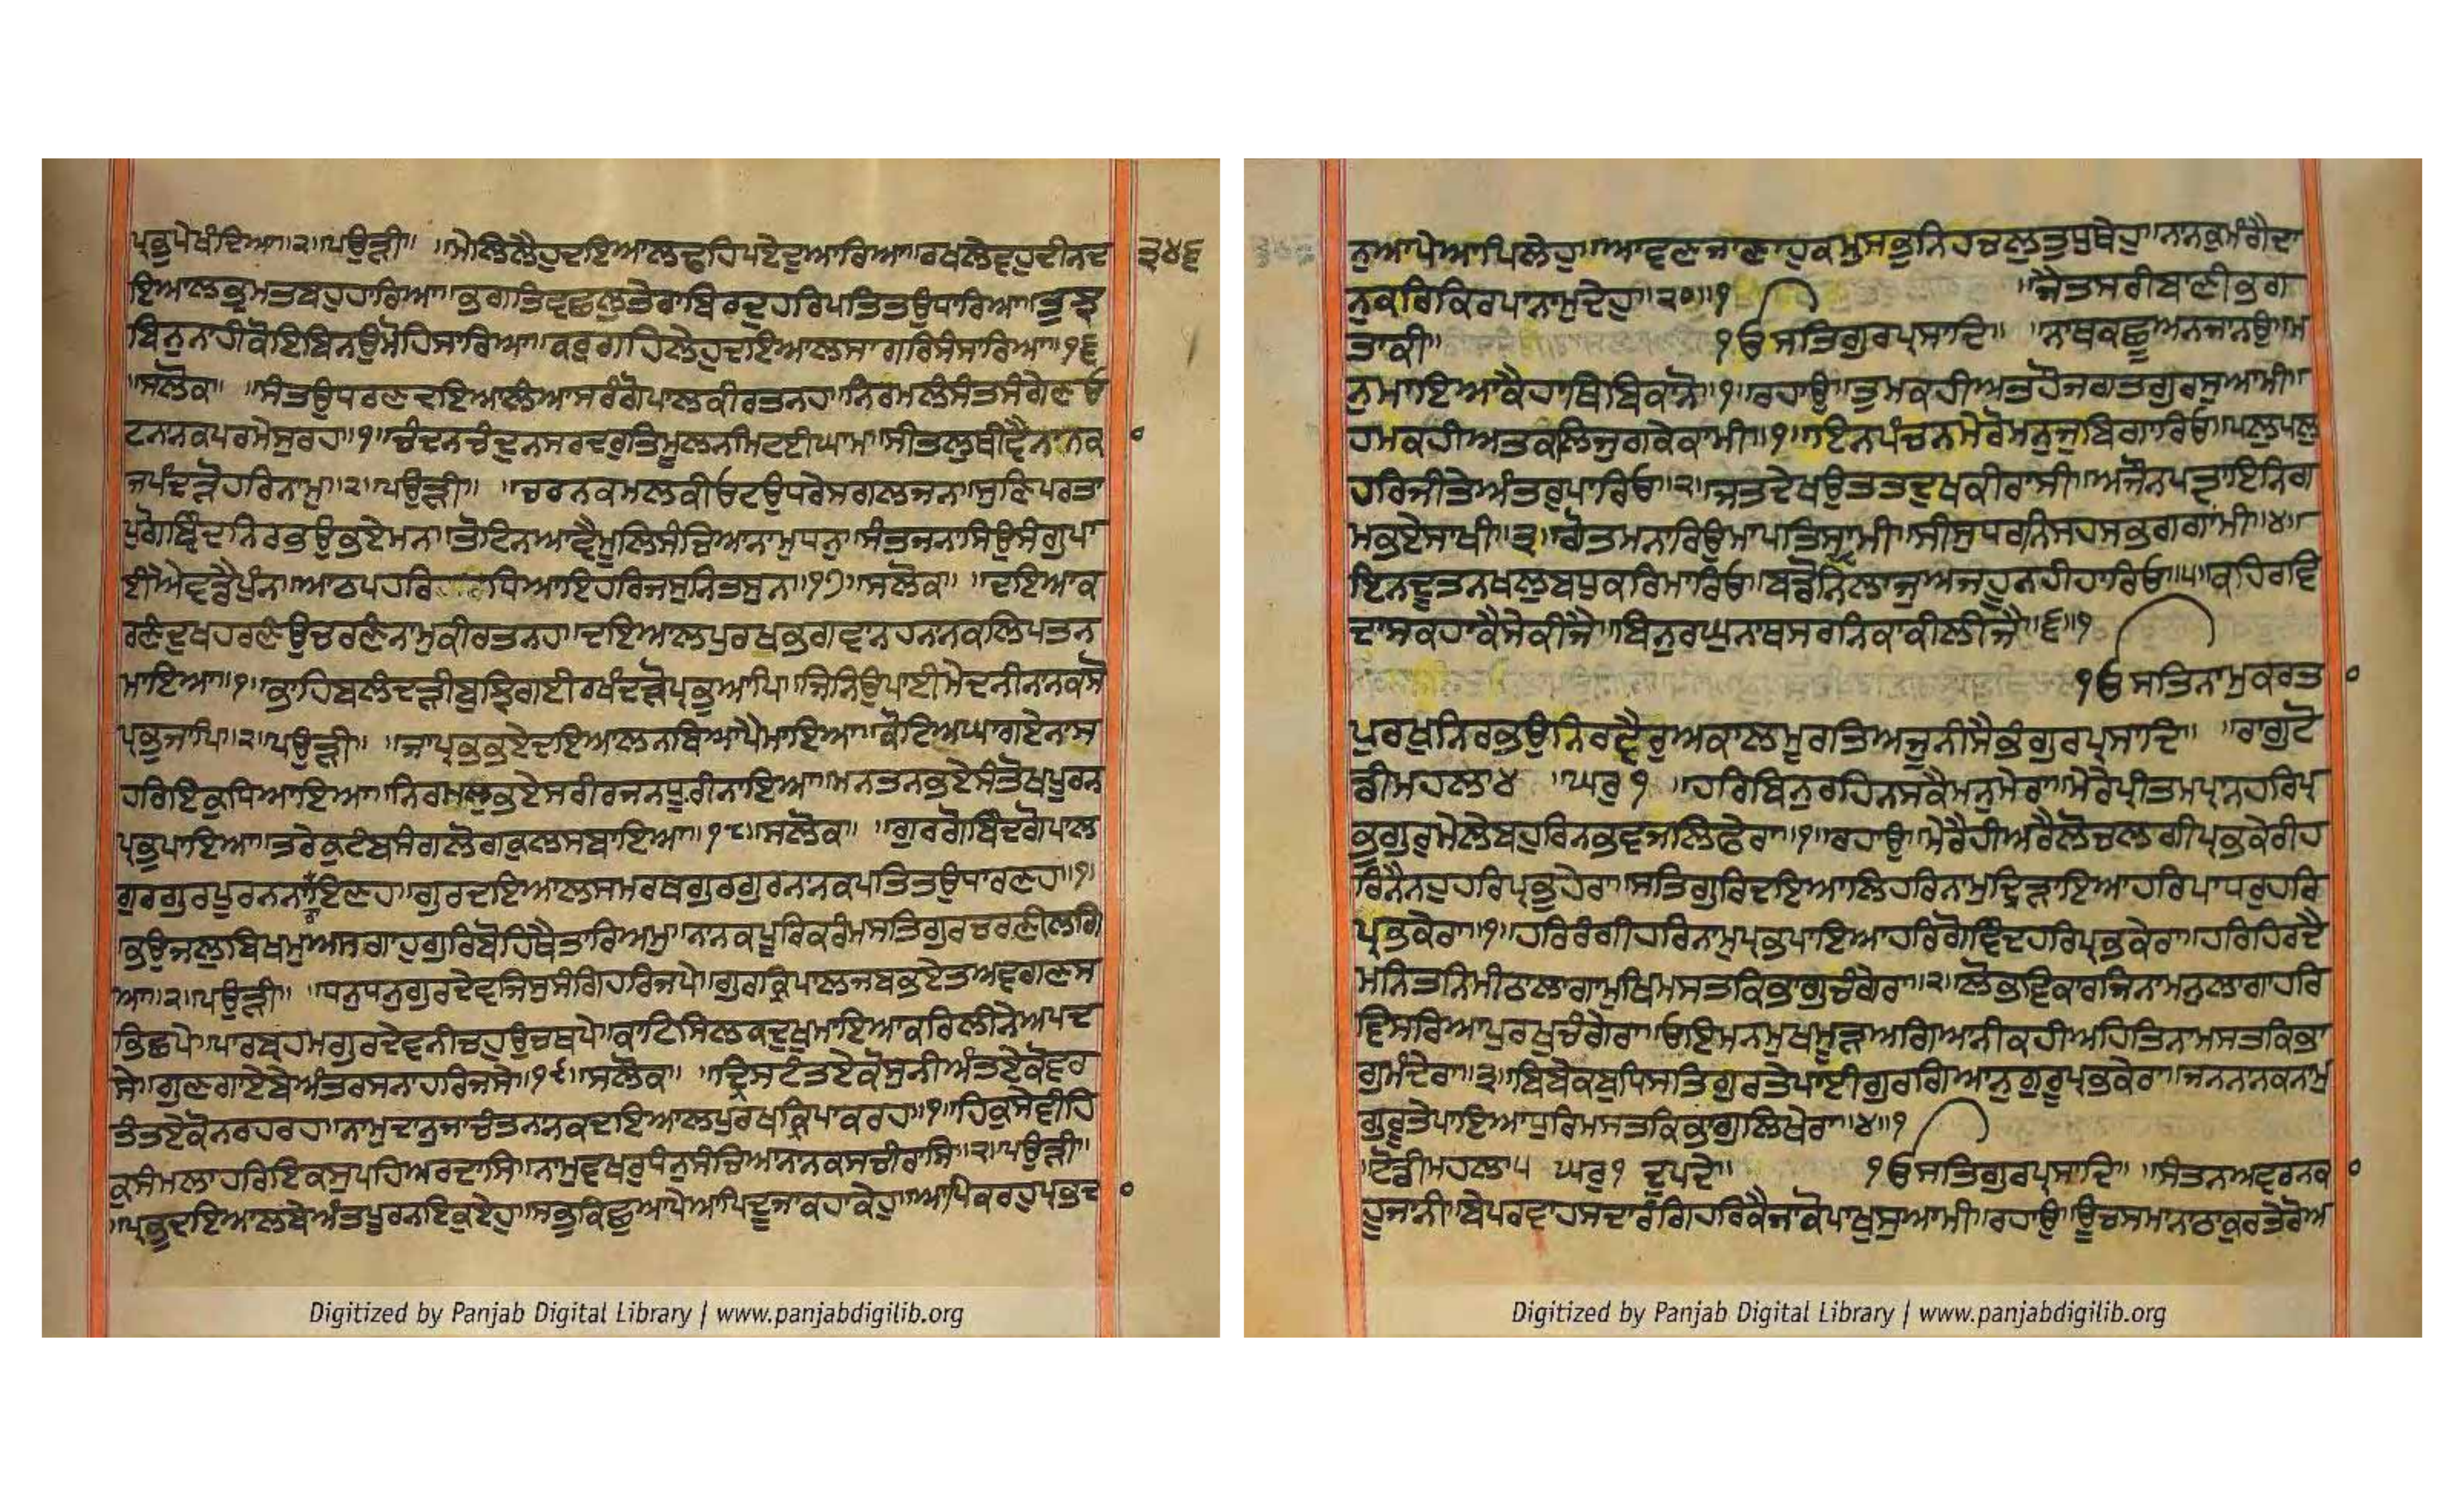 ਪ੍ਰਭੁਪੇਖੰਦਿਆ॥੨॥ਪਉੜੀ॥ ॥ਮੇਲਿਲੈਹੁਦਇਆਲਢਹਿਪਏਦੁਆਰਿਆ॥ਰਖਲੇਵਹੁਦੀਨਦ ੩੪੬
ਇਆਲਭ੍ਰਮਤਬਹੁਹਾਰਿਆ॥ਭਗਤਿਵਛਲੁਤੇਰਾਬਿਰਦੁਹਰਿਪਤਿਤਉਧਾਰਿਆ॥ਤੁਝ
ਬਿਨੁਨਾਹੀਕੋਇਬਿਨਉਮੋਹਿਸਾਰਿਆ॥ਕਰੁਗਹਿਲੇਹੁਦਇਆਲਸਾਗਰਿਸੰਸਾਰਿਆ॥੧੬
॥ਸਲੋਕ॥ ॥ਸੰਤਉਧਰਣਦਇਆਲੰਆਸਰੰਗੋਪਾਲਕੀਰਤਨਹ॥ਨਿਰਮਲੰਸੰਤਸੰਗੇਣਓ
ਟਨਾਨਕਪਰਮੇਸੁਰਹ॥੧॥ਚੰਦਨਚੰਦੁਨਸਰਦਰੁਤਿਮੂਲਨਮਿਟਈਘਾਮ॥ਸੀਤਲੁਥੀਵੈਨਾਨਕ
ਜਪੰਦੜੋਹਰਿਨਾਮੁ॥੨॥ਪਉੜੀ॥ ॥ਚਰਨਕਮਲਕੀਓਟਉਧਰੇਸਗਲਜਨ॥ਸੁਣਿਪਰਤਾ
ਪੁਗੋਬਿੰਦਨਿਰਭਉਭਏਮਨ॥ਤੋਟਿਨਆਵੈਮੂਲਿਸੰਚਿਆਨਾਮੁਧਨੁ॥ਸੰਤਜਨਾਸਿਉਸੰਗੁਪਾ
ਈਐਵਡੈਪੁੰਨ॥ਆਠਪਹਰਿਹਰਿਧਿਆਇਹਰਿਜਸੁਨਿਤਸੁਨ॥੧੭॥ਸਲੋਕ॥ ॥ਦਇਆਕ
ਰਣੰਦੁਖਹਰਣੰਉਚਰਣੰਨਾਮੁਕੀਰਤਨਹ॥ਦਇਆਲਪੁਰਖਭਗਵਾਨਹਨਾਨਕਲਿਪਤਨ
ਮਾਇਆ॥੧॥ਭਾਹਿਬਲੰਦੜੀਬੁਝਿਗਈਰਖੰਦੜੋਪ੍ਰਭੁਆਪਿ॥ਜਿਨਿਉਪਾਈਮੇਦਨੀਨਾਨਕਸੋ
ਪ੍ਰਭੁਜਾਪਿ॥੨॥ਪਉੜੀ॥ ॥ਜਾਪ੍ਰਭਭਏਦਇਆਲਨਬਿਆਪੈਮਾਇਆ॥ਕੋਟਿਅਘਾਗਏਨਾਸ
ਹਰਿਇਕੁਧਿਆਇਆ॥ਨਿਰਮਲਭਏਸਰੀਰਜਨਧੂਰੀਨਾਇਆ॥ਮਨਤਨਭਏਸੰਤੋਖਪੂਰਨ
ਪ੍ਰਭੁਪਾਇਆ॥ਤਰੇਕੁਟੰਬਸੰਗਲੋਗਕੁਲਸਬਾਇਆ॥੧੮॥ਸਲੋਕ॥ ॥ਗੁਰਗੋਬਿੰਦਗੋਪਾਲ
ਗੁਰਗੁਰਪੂਰਨਨਾਰਾਇਣਹ॥ਗੁਰਦਇਆਲਸਮਰਥਗੁਰਗੁਰਨਾਨਕਪਤਿਤਉਧਾਰਣਹ॥੧॥
ਭਉਜਲੁਬਿਖਮੁਅਸਗਾਹੁਗੁਰਿਬੋਹਿਥੈਤਾਰਿਅਮੁ॥ਨਾਨਕਪੂਰਿਕਰੰਮਸਤਿਗੁਰਚਰਣੀਲਗਿ
ਆ॥੨॥ਪਉੜੀ॥ ॥ਧਨੁਧਨੁਗੁਰਦੇਵਜਿਸੁਸੰਗਿਹਰਿਜਪੇ॥ਗੁਰਕ੍ਰਿਪਾਲਜਬਭਏਤਅਵਗੁਣਸ
ਭਿਛਪੇ॥ਪਾਰਬ੍ਰਹਮਗੁਰਦੇਵਨੀਚਹੁਉਚਥਪੇ॥ਕਾਟਿਸਿਲਕਦੁਖੁਮਾਇਆਕਰਿਲੀਨੇਅਪਦ
ਸੇ॥ਗੁਣਗਾਏਬੇਅੰਤਰਸਨਾਹਰਿਜਸੇ॥੧੯॥ਸਲੋਕ॥ ॥ਦ੍ਰਿਸਟੰਤਏਕੋਸੁਨੀਅੰਤਏਕੋਵਰ
ਤੰਤਏਕੋਨਰਹਰਹ॥ਨਾਮੁਦਾਨੁਜਾਚੰਤਨਾਨਕਦਇਆਲਪੁਰਖਕ੍ਰਿਪਾਕਰਹ॥੧॥ਹਿਕੁਸੇਵੀਹਿ
ਕੁਸੰਮਲਾਹਰਿਇਕਸੁਪਹਿਅਰਦਾਸਿ॥ਨਾਮੁਵਖਰੁਧਨੁਸੰਚਿਆਨਾਨਕਸਚੀਰਾਸਿ॥੨॥ਪਉੜੀ॥
॥ਪ੍ਰਭਦਇਆਲਬੇਅੰਤਪੂਰਨਇਕੁਏਹੁ॥ਸਭੁਕਿਛੁਆਪੇਆਪਿਦੂਜਾਕਹਾਕੇਹੁ॥ਆਪਿਕਰਹੁਪ੍ਰਭਦ
ਨੁਆਪੇਆਪਿਲੇਹੁ॥ਆਵਣਜਾਣਾਹੁਕਮੁਸਭੁਨਿਹਚਲੁਤੁਧੁਥੇਹੁ॥ਨਾਨਕੁਮੰਗੈਦਾ
ਨੁਕਰਿਕਿਰਪਾਨਾਮੁਦੇਹੁ॥੨੦॥੧ ॥ਜੈਤਸਰੀਬਾਣੀਭਗ
ਤਾਕੀ॥ ੧ਓਸਤਿਗੁਰਪ੍ਰਸਾਦਿ॥ ॥ਨਾਥਕਛੂਅਨਜਾਨਉ॥ਮ
ਨੁਮਾਇਆਕੈਹਾਥਿਬਿਕਾਨੋ॥੧॥ਰਹਾਉ॥ਤੁਮਕਹੀਅਤਹੋਜਗਤਗੁਰਸੁਆਮੀ॥
ਹਮਕਹੀਅਤਕਲਿਜੁਗਕੇਕਾਮੀ॥੧॥ਇਨਪੰਚਨਮੇਰੋਮਨੁਜੁਬਿਗਾਰਿਓ॥ਪਲੁਪਲੁ
ਹਰਿਜੀਤੇਅੰਤਰੁਪਾਰਿਓ॥੨॥ਜਤਦੇਖਉਤਤਦੁਖਕੀਰਾਸੀ॥ਅਜੌਨਪਤ੍ਯਾਇਨਿਗ
ਮਭਏਸਾਖੀ॥੩॥ਗੋਤਮਨਾਰਿਉਮਾਪਤਿਸ੍ਵਾਮੀ॥ਸੀਸੁਧਰਨਿਸਹਸਭਗਗਾਂਮੀ॥੪॥
ਇਨਦੂਤਨਖਲੁਬਧੁਕਰਿਮਾਰਿਓ॥ਬਡੋਨਿਲਾਜੁਅਜਹੂਨਹੀਹਾਰਿਓ॥੫॥ਕਹਿਰਵਿ
ਦਾਸਕਹਾਕੈਸੇਕੀਜੈ॥ਬਿਨੁਰਘੁਨਾਥਸਰਨਿਕਾਕੀਲੀਜੈ॥੬॥੧
੧ਓਸਤਿਨਾਮੁਕਰਤ
ਪੁਰਖੁਨਿਰਭਉਨਿਰਵੈਰੁਅਕਾਲਮੂਰਤਿਅਜੂਨੀਸੈਭੰਗੁਰਪ੍ਰਸਾਦਿ॥ ॥ਰਾਗੁਟੋ
ਡੀਮਹਲਾ੪ ॥ਘਰੁ੧ ॥ਹਰਿਬਿਨੁਰਹਿਨਸਕੈਮਨੁਮੇਰਾ॥ਮੇਰੇਪ੍ਰੀਤਮਪ੍ਰਾਨਹਰਿਪ੍ਰ
ਭੁਗੁਰੁਮੇਲੇਬਹੁਰਿਨਭਵਜਲਿਫੇਰਾ॥੧॥ਰਹਾਉ॥ਮੇਰੈਹੀਅਰੈਲੋਚਲਗੀਪ੍ਰਭਕੇਰੀਹ
ਰਿਨੈਨਹੁਹਰਿਪ੍ਰਭੁਹੇਰਾ॥ਸਤਿਗੁਰਿਦਇਆਲਿਹਰਿਨਾਮੁਦ੍ਰਿੜਾਇਆਹਰਿਪਾਧਰੁਹਰਿ
ਪ੍ਰਭਕੇਰਾ॥੧॥ਹਰਿਰੰਗੀਹਰਿਨਾਮੁਪ੍ਰਭਪਾਇਆਹਰਿਗੋਵਿੰਦਹਰਿਪ੍ਰਭਕੇਰਾ॥ਹਰਿਹਿਰਦੈ
ਮਨਿਤਨਿਮੀਠਲਾਗਾਮੁਖਿਮਸਤਕਿਭਾਗੁਚੰਗੇਰਾ॥੨॥ਲੋਭਵਿਕਾਰਜਿਨਾਮਨੁਲਾਗਾਹਰਿ
ਵਿਸਰਿਆਪੁਰਖੁਚੰਗੇਰਾ॥ਓਇਮਨਮੁਖਮੂੜਅਗਿਆਨੀਕਹੀਅਹਿਤਿਨਾਮਸਤਕਿਭਾ
ਗੁਮੰਦੇਰਾ॥੩॥ਬਿਬੇਕਬੁਧਿਸਤਿਗੁਰਤੇਪਾਈਗੁਰਗਿਆਨੁਗੁਰੂਪ੍ਰਭਕੇਰਾ॥ਜਨਨਾਨਕਨਾਮੁ
ਗੁਰੂਤੇਪਾਇਆਧੁਰਿਮਸਤਕਿਭਾਗੁਲਿਖੇਰਾ॥੪॥੧
ਟੋਡੀਮਹਲਾ੫ ਘਰੁ੧ ਦੁਪਦੇ॥ ੧ਓਸਤਿਗੁਰਪ੍ਰਸਾਦਿ॥ ॥ਸੰਤਨਅਵਰਨਕ
ਹੂਜਾਨੀ॥ਬੇਪਰਵਾਹਸਦਾਰੰਗਿਹਰਿਕੈਜਾਕੋਪਾਖੁਸੁਆਮੀ॥ਰਹਾਉ॥ਊਚਸਮਾਨਾਠਾਕੁਰਤੇਰੋਅ
Digitized by Panjab Digital Library | www.panjabdigilib.org
Digitized by Panjab Digital Library | www.panjabdigilib.org